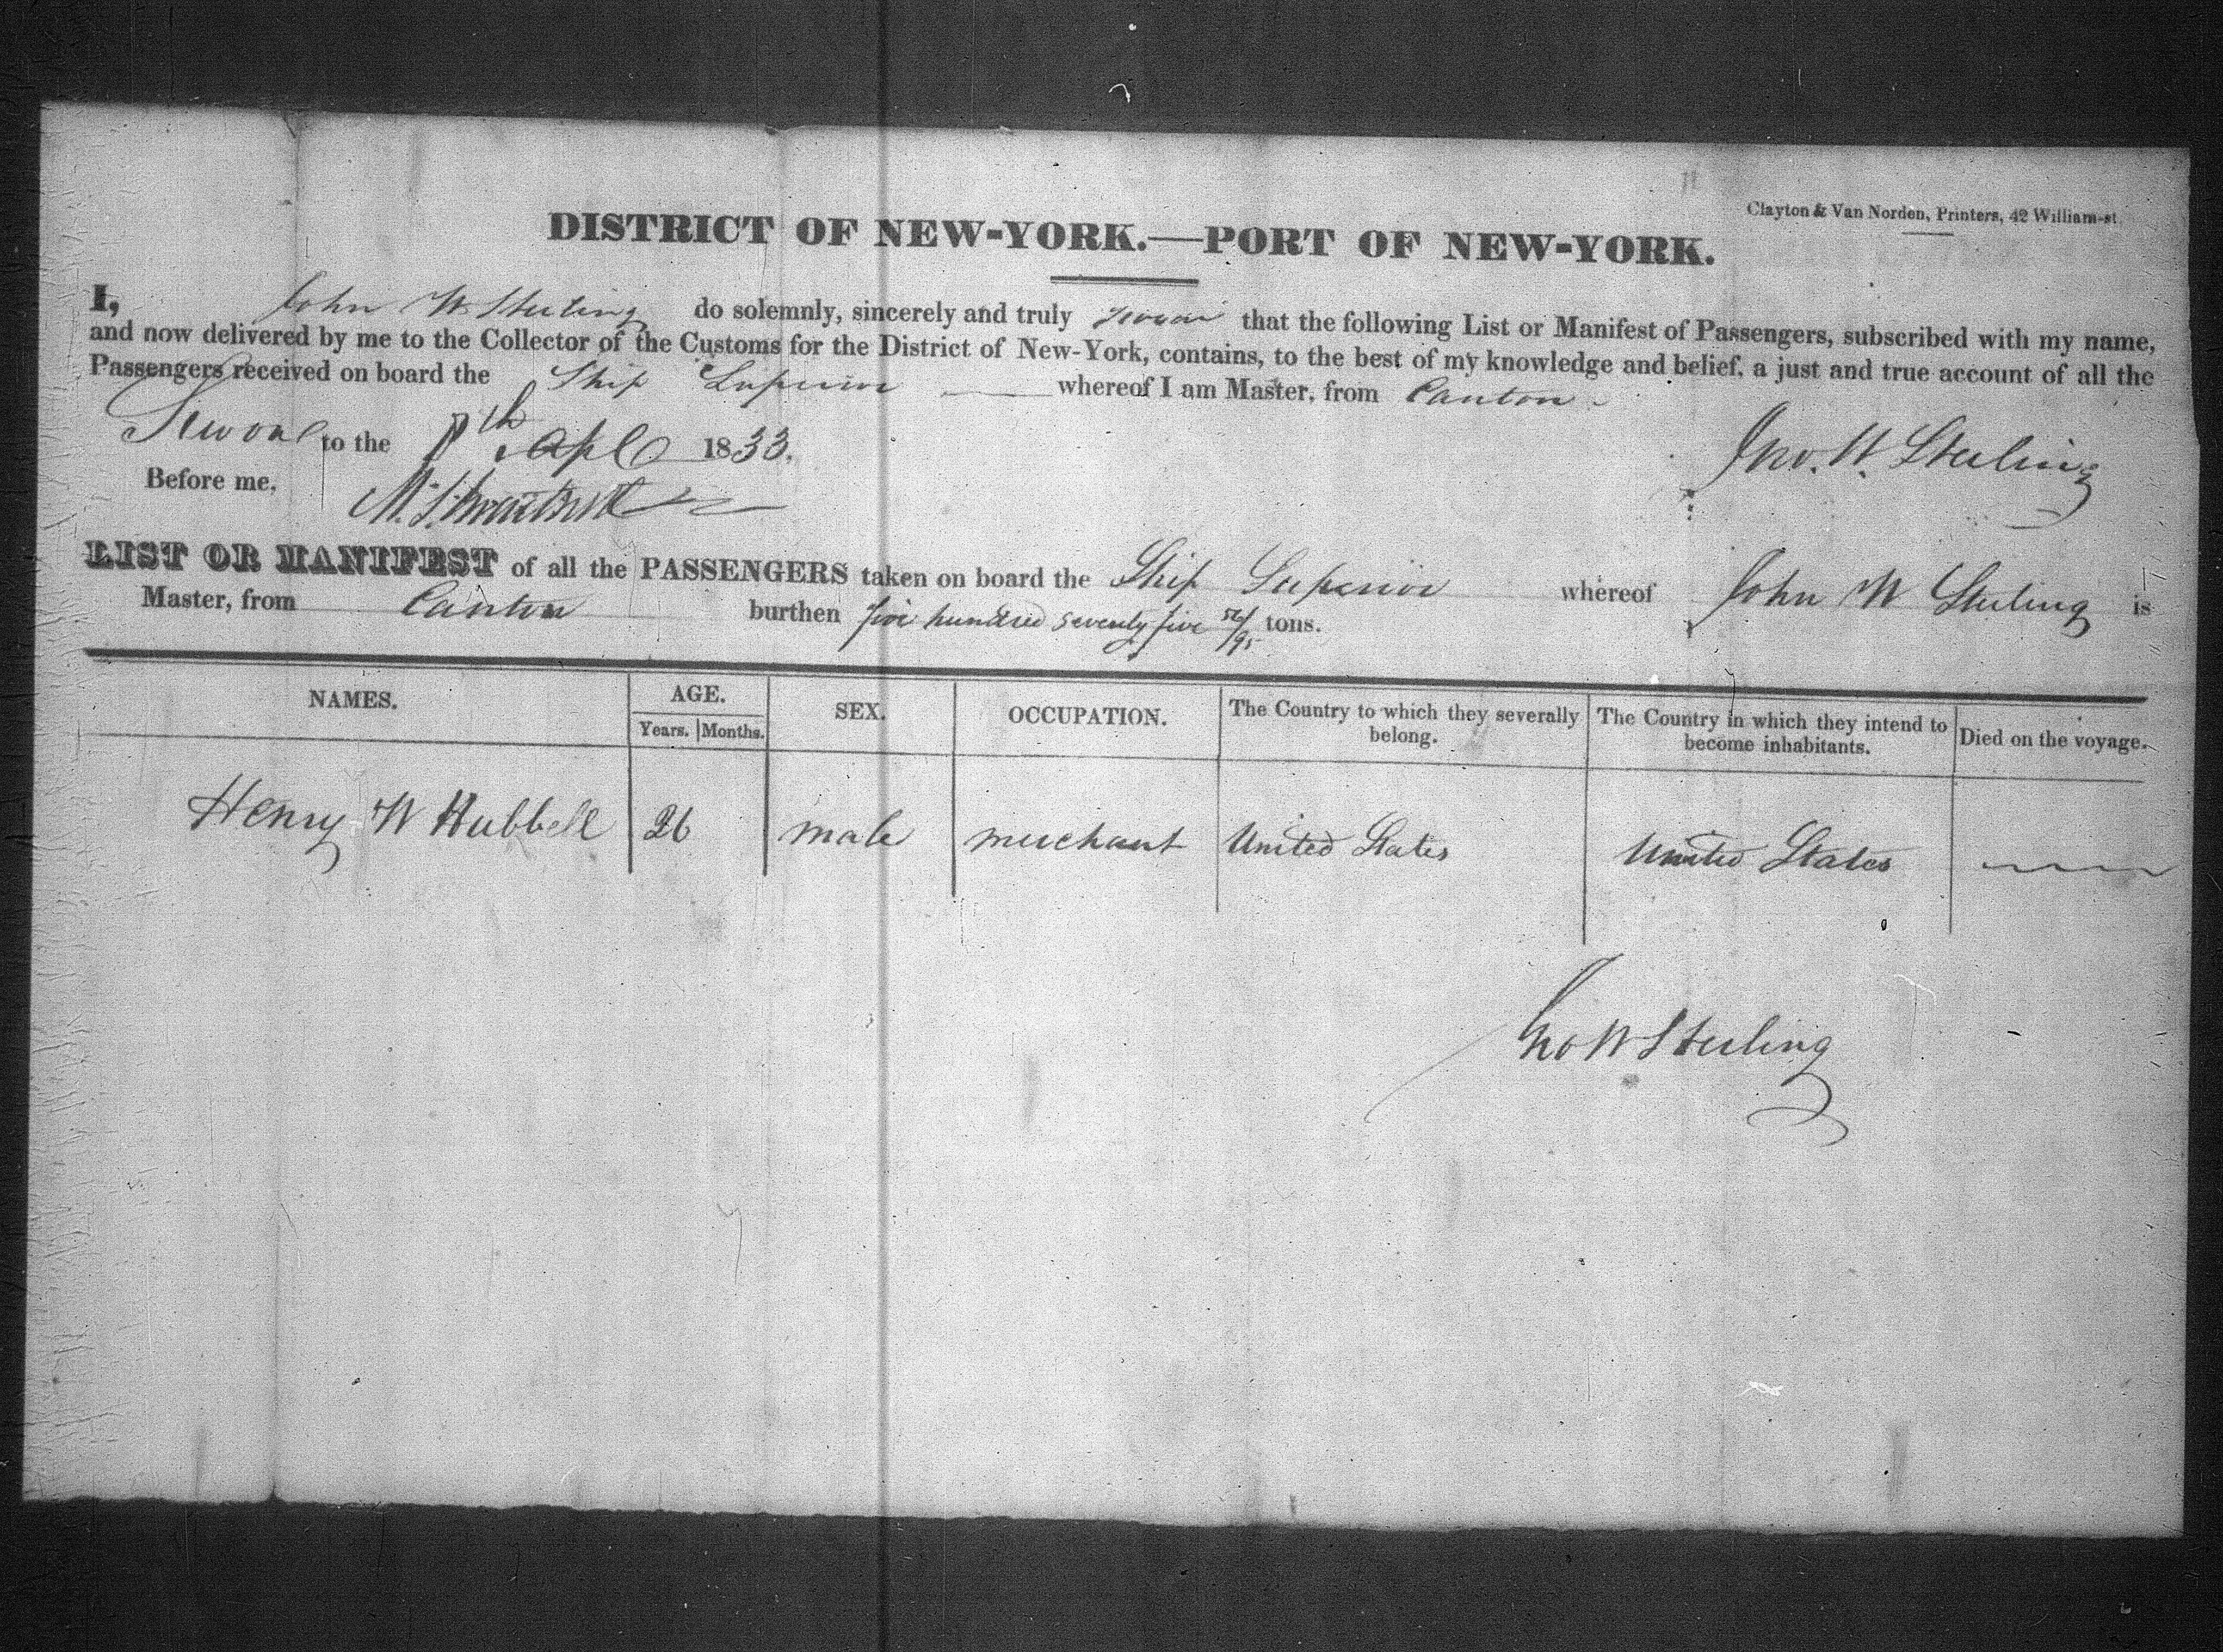 Clayton & Van Norden, Printers, 42 William-st.
DISTRICT OF NEW-YORK.—PORT OF NEW-YORK.
I, John W Sterling do solemnly, sincerely and truly swear that the following List or Manifest of Passengers, subscribed with my name,
and now delivered by me to the Collector of the Customs for the District of New-York, contains, to the best of my knowledge and belief, a just and true account of all the
Passengers received on board the Ship Superior whereof I am Master, from Canton
Jno. W. Sterling
Sworn to the Apl 1833.
Before me,
LIST OR MANIFEST of all the PASSENGERS taken on board the Ship Superior whereof John W Sterling is
Master, from Canton burthen five hundred seventy five 56/95 tons.
NAMES. AGE. SEX. OCCUPATION. The Country to which they severally belong. The Country in which they intend to become inhabitants. Died on the voyage.
Years. Months.
Henry W Hubbell 26 male merchant United States United States
Jno W Sterling